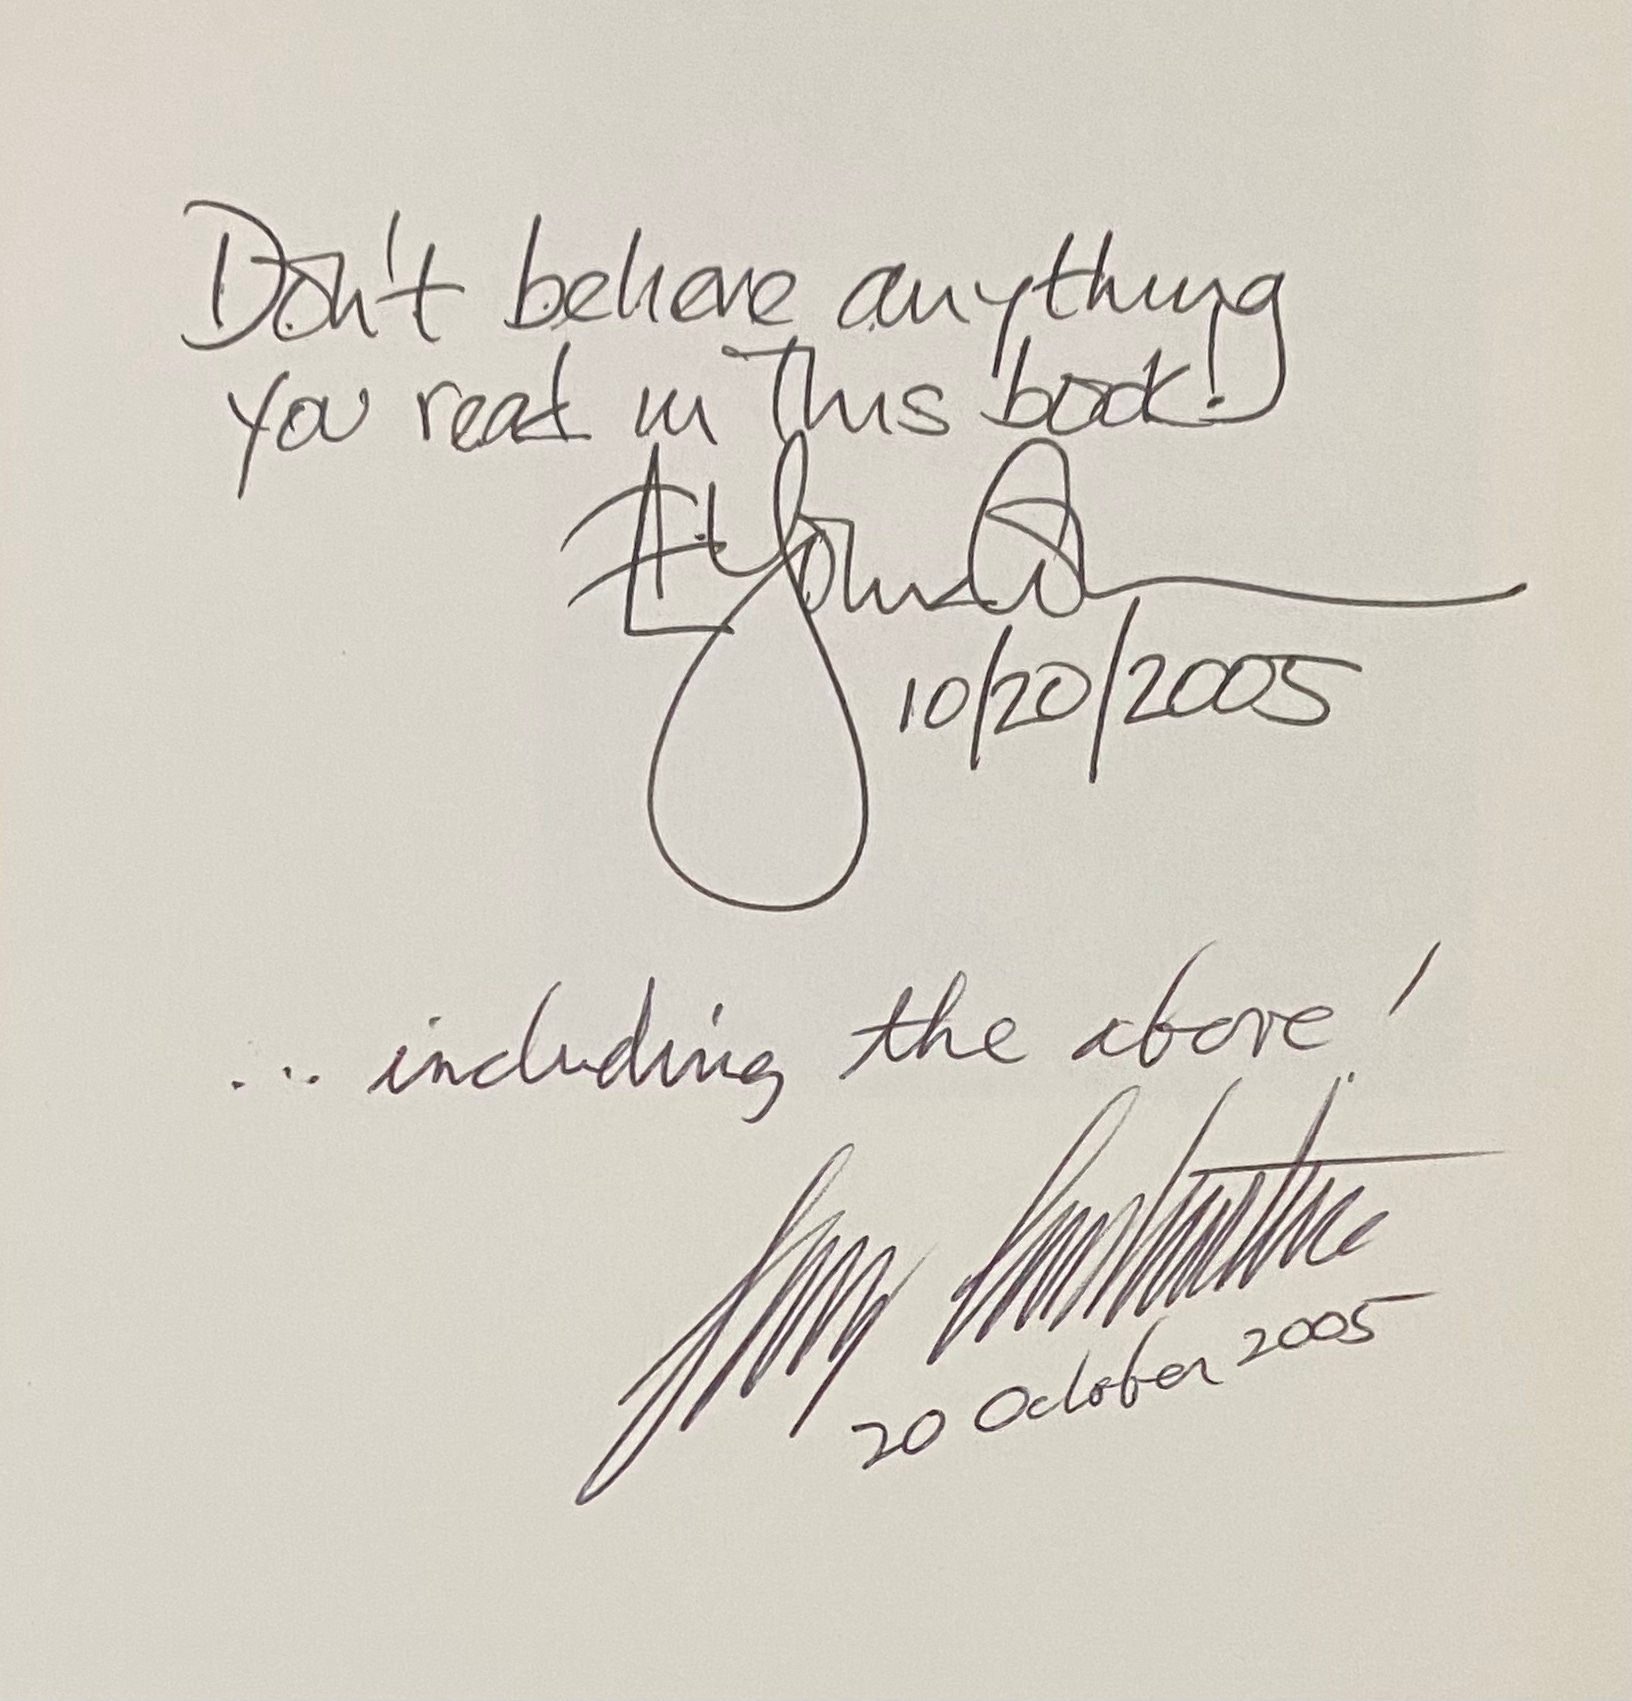 Don't believe anything
you read in this book!
10/20/2005
... including the above!
20 October 2005